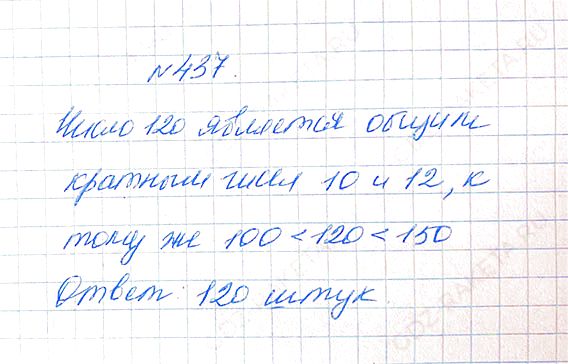 №437.
Число 120 является общим
кратным чисел 10 и 12, к
тому же 100 < 120 < 150
Ответ: 120 штук.
GDZ-RAKETA.RU